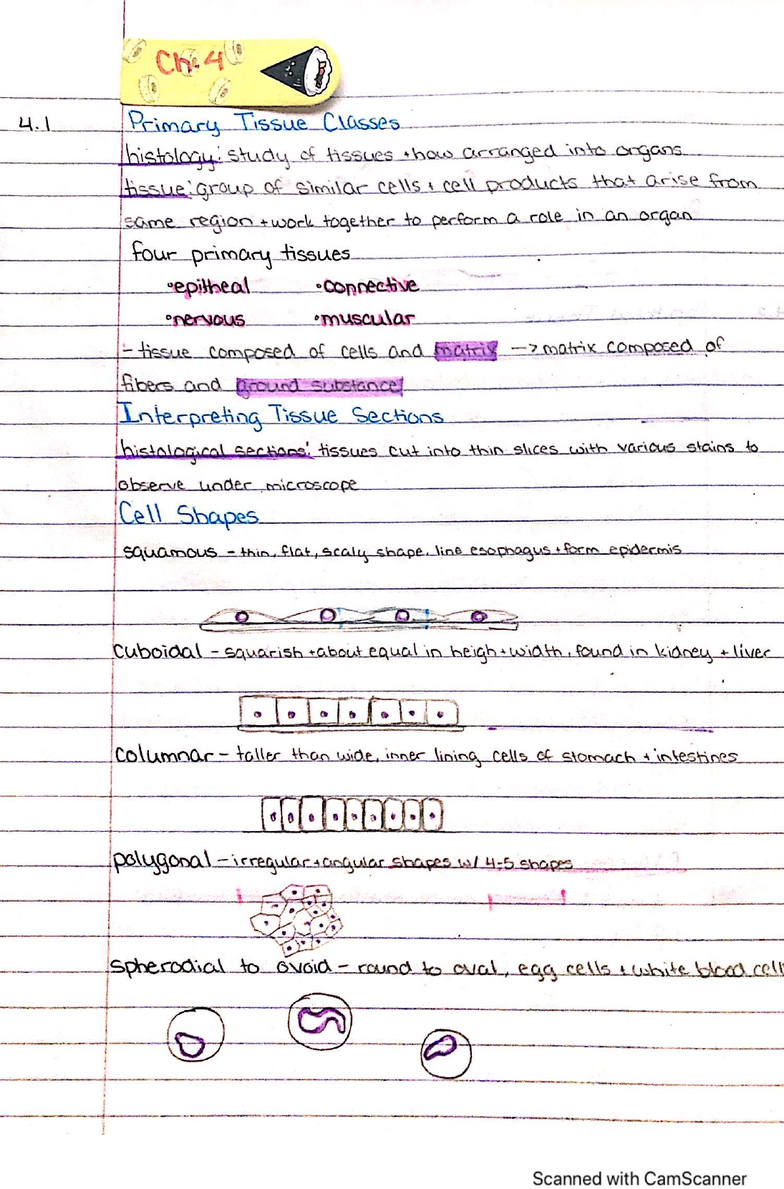 Ch. 4
4.1 Primary Tissue Classes
histology: study of tissues + how arranged into organs
tissue: group of similar cells + cell products that arise from
same region + work together to perform a role in an organ
four primary tissues
•epitheal •connective
•nervous •muscular
- tissue composed of cells and matrix -> matrix composed of
fibers and ground substance
Interpreting Tissue Sections
histological sections: tissues cut into thin slices with various stains to
observe under microscope
Cell Shapes
squamous - thin, flat, scaly shape. line esophagus + form epidermis
cuboidal - squarish + about equal in heigh + width, found in kidney + liver
columnar - taller than wide, inner lining cells of stomach + intestines
polygonal - irregular + angular shapes w/ 4-5 shapes
spherodial to ovoid - round to oval, egg cells + white blood cell
Scanned with CamScanner